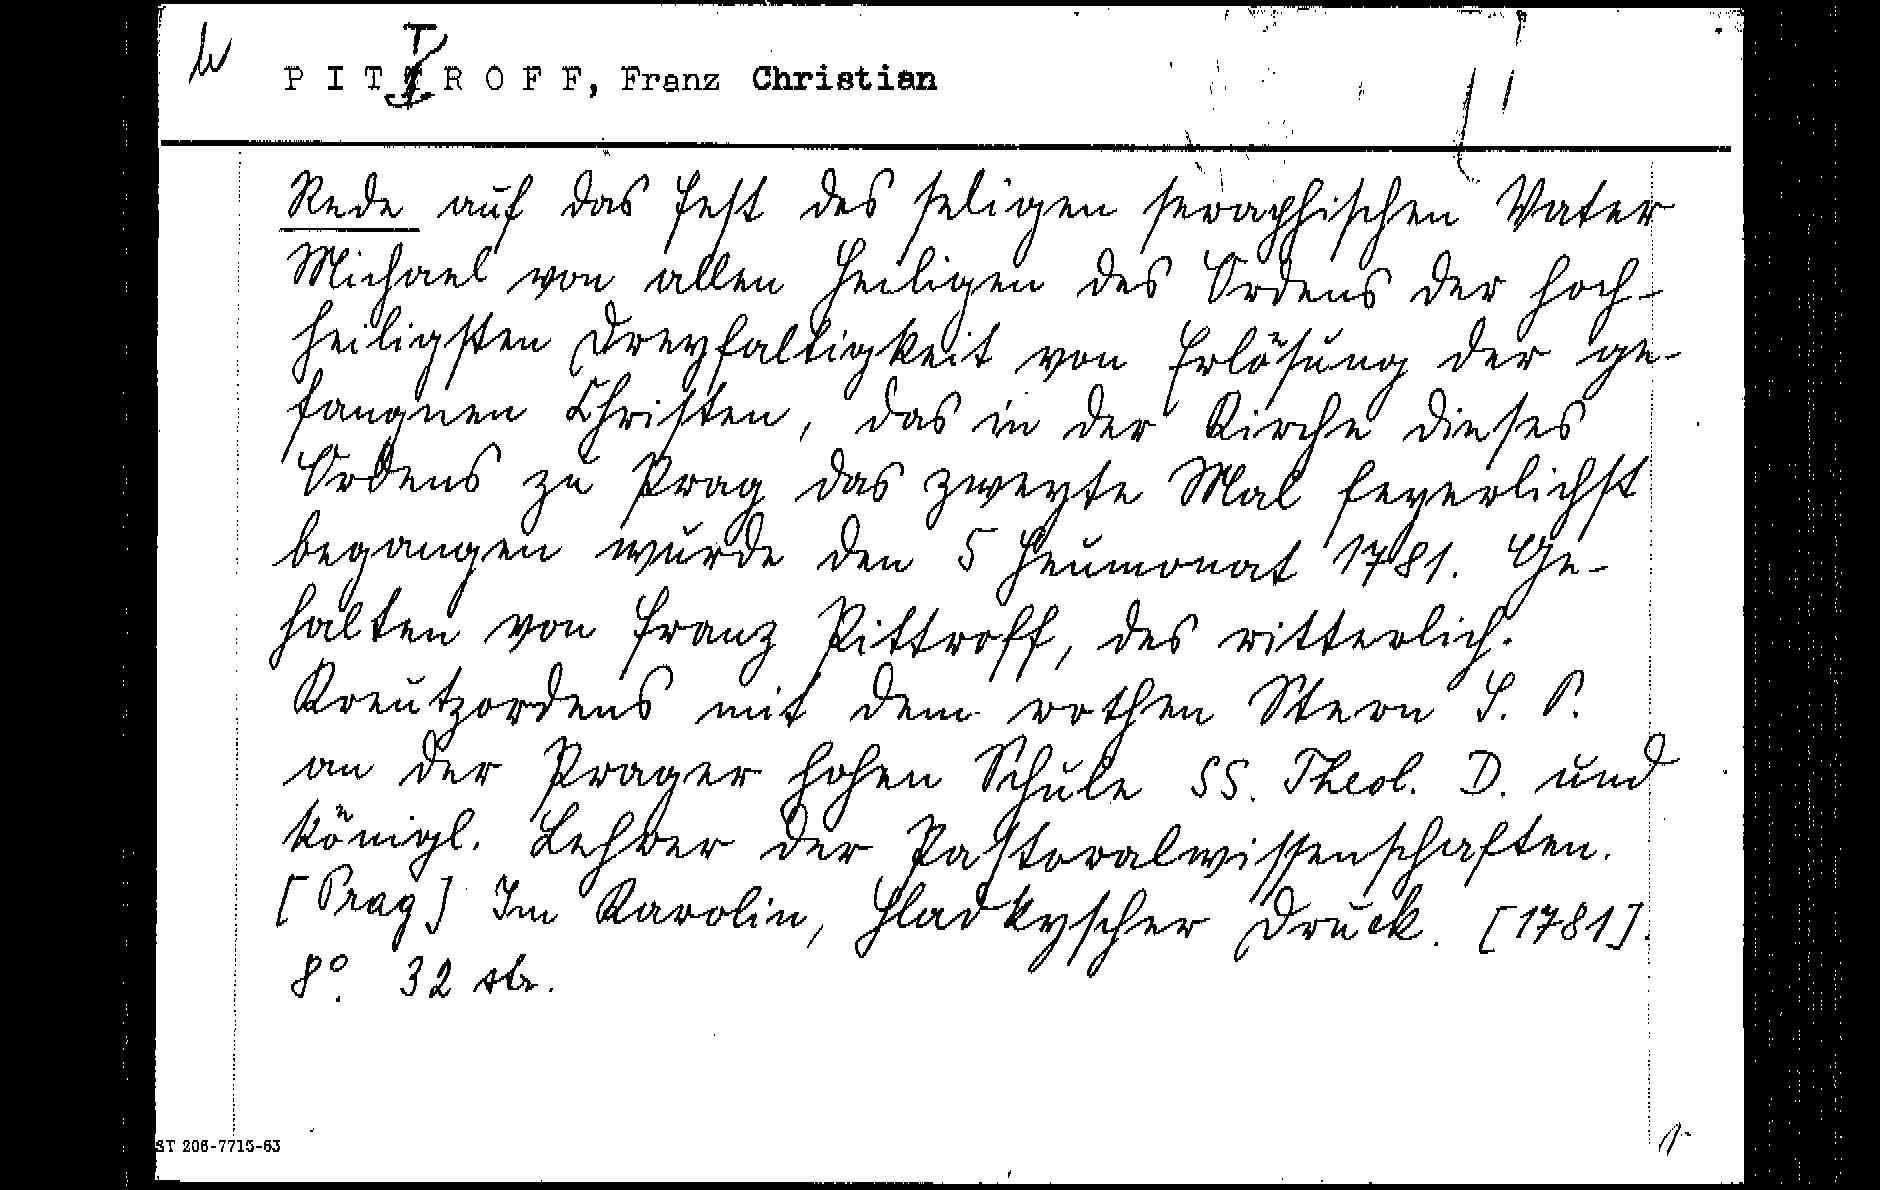 PITTROFF, Franz Christian
Rede auf das Fest des seligen seraphischen Vater
Michael von allen Heiligen des Ordens der hoch-
heiligsten Dreyfaltigkeit von Erlösung der ge-
fangnen Christen, das in der Kirche dieses
Ordens zu Prag das zweyte Mal feyerlichst
begangen wurde den 5 Heumonat 1781. Ge-
halten von Franz Pittroff, des ritterlich.
Kreutzordens mit dem rothen Stern S. P.
an der Prager hohen Schule SS. Theol. D. und
königl. Lehrer der Pastoralwissenschaften.
[Prag] Im Karolin, Hladkyscher Druck. [1781].
8°. 32 str.
ST 206-7715-63